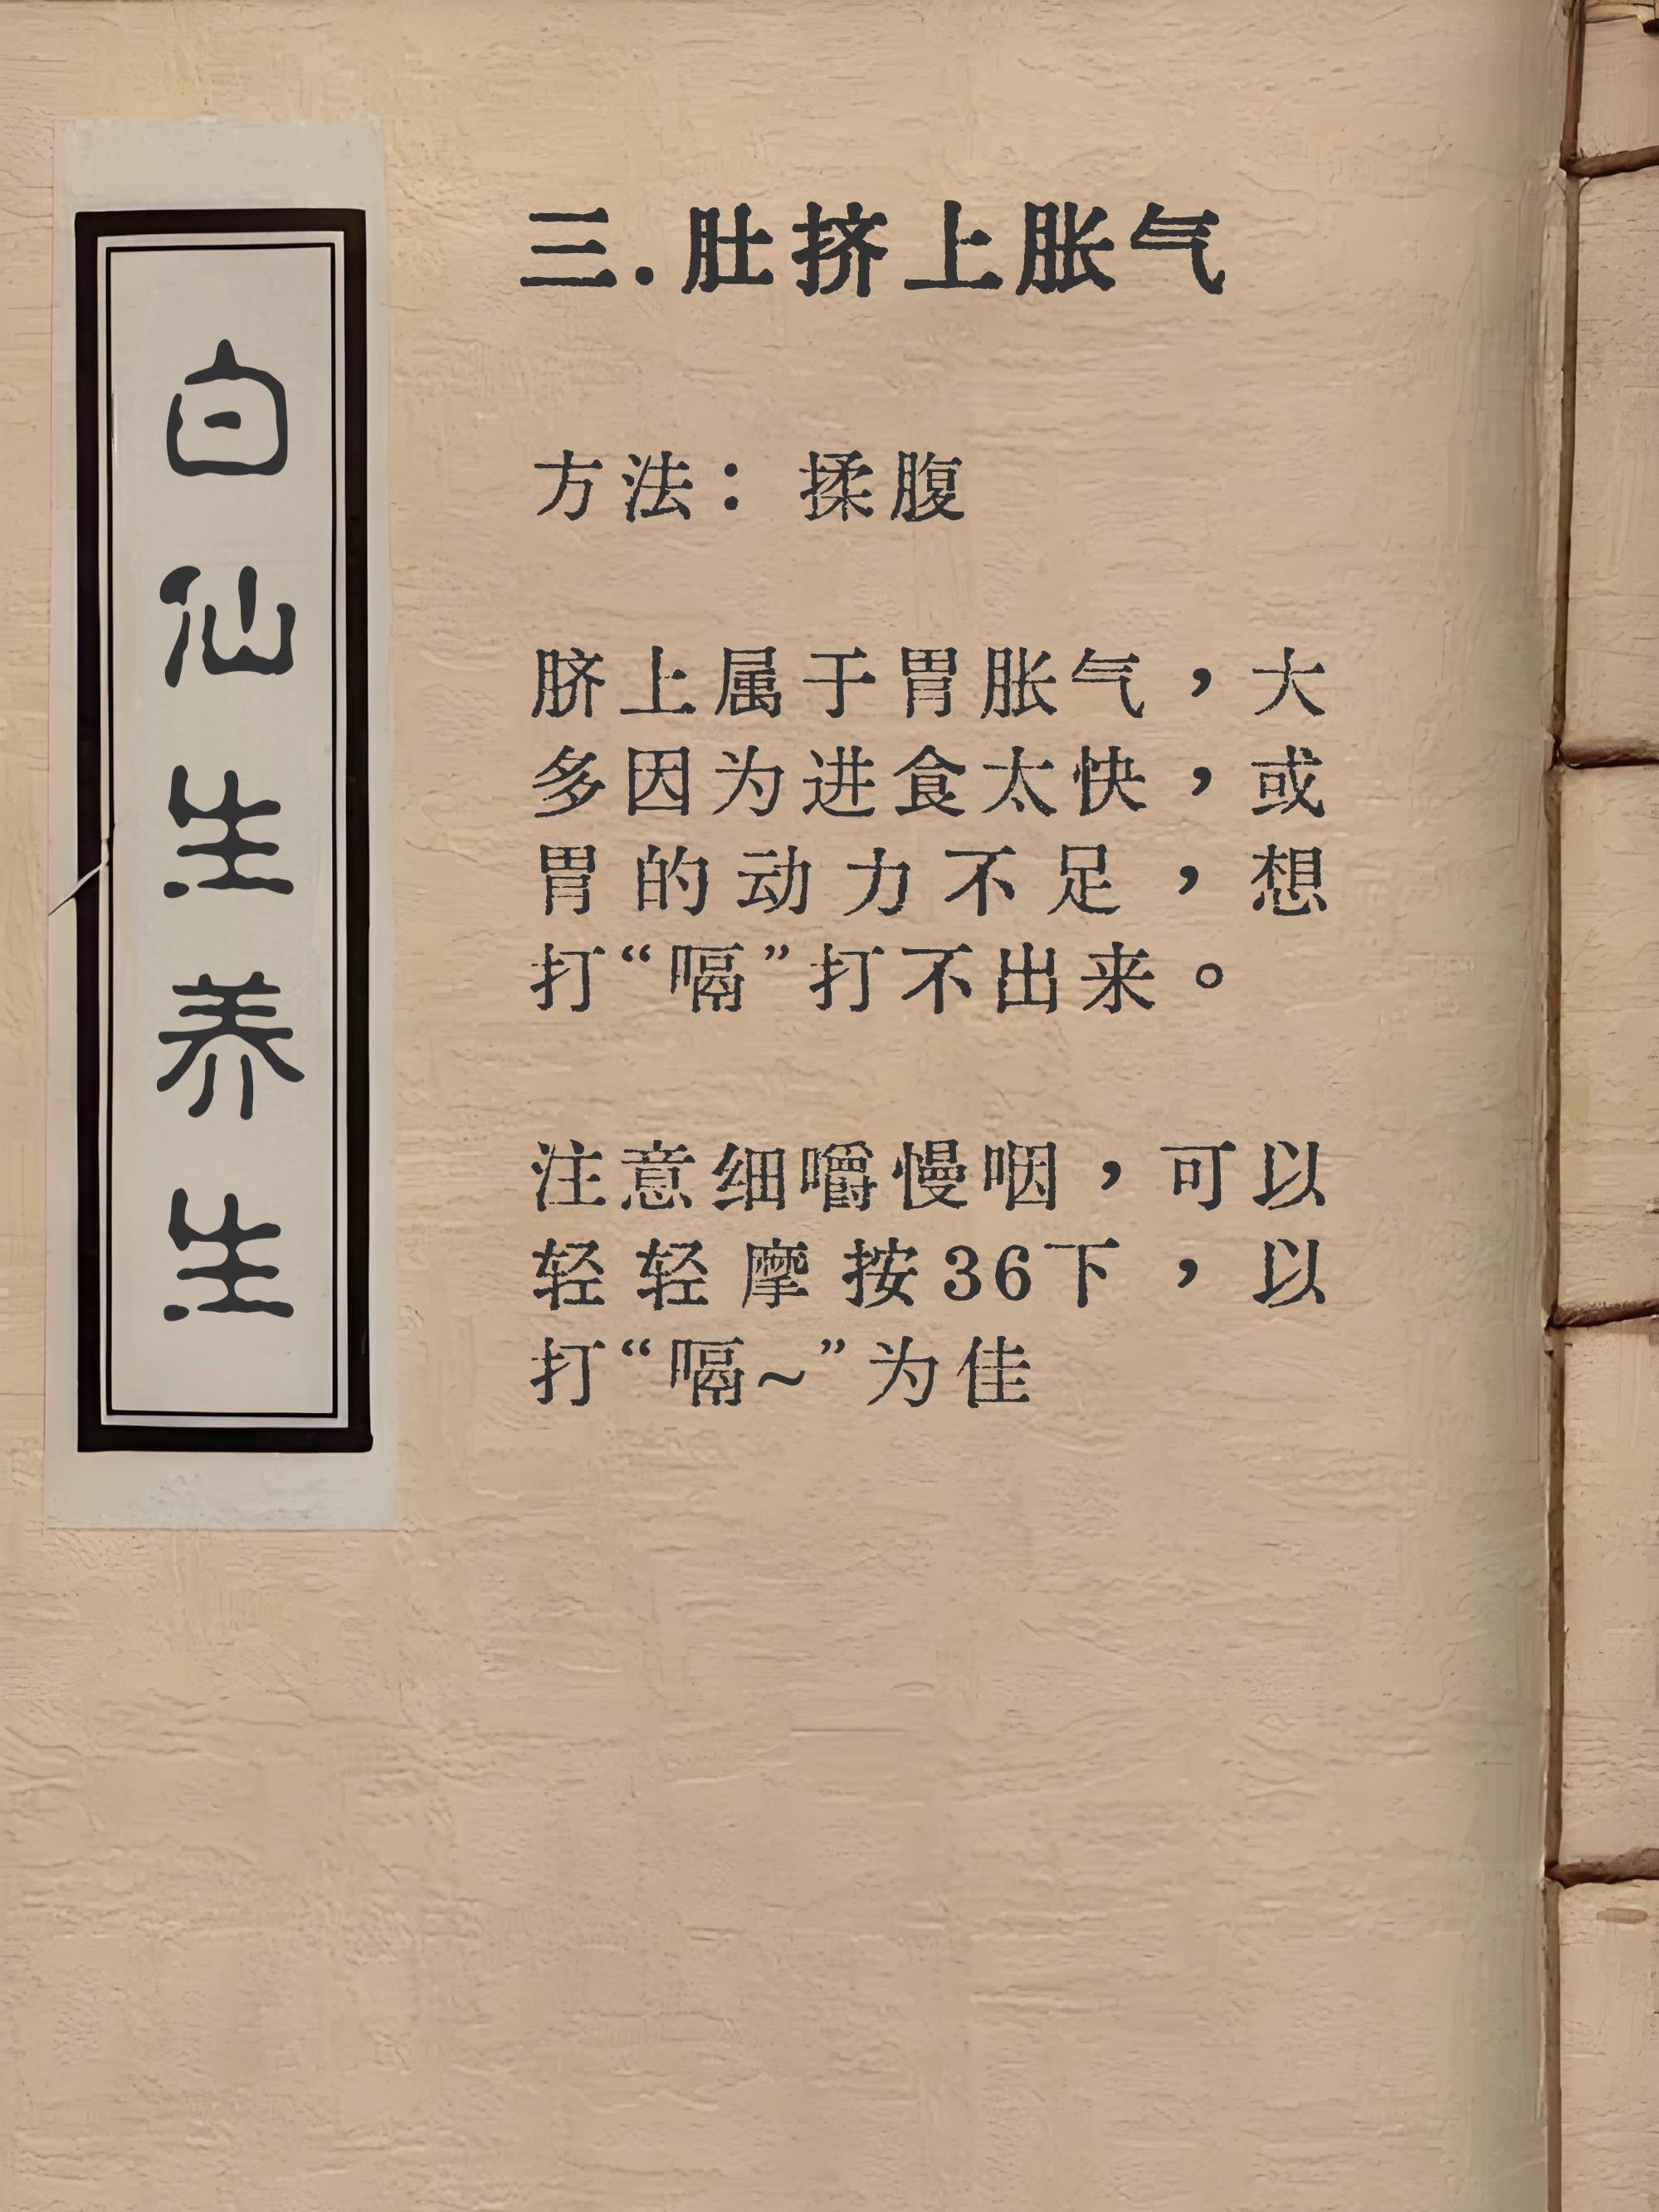 白仙生养生
三.肚挤上胀气
方法：揉腹
脐上属于胃胀气，大
多因为进食太快，或
胃的动力不足，想
打“嗝”打不出来。
注意细嚼慢咽，可以
轻轻摩按36下，以
打“嗝~”为佳